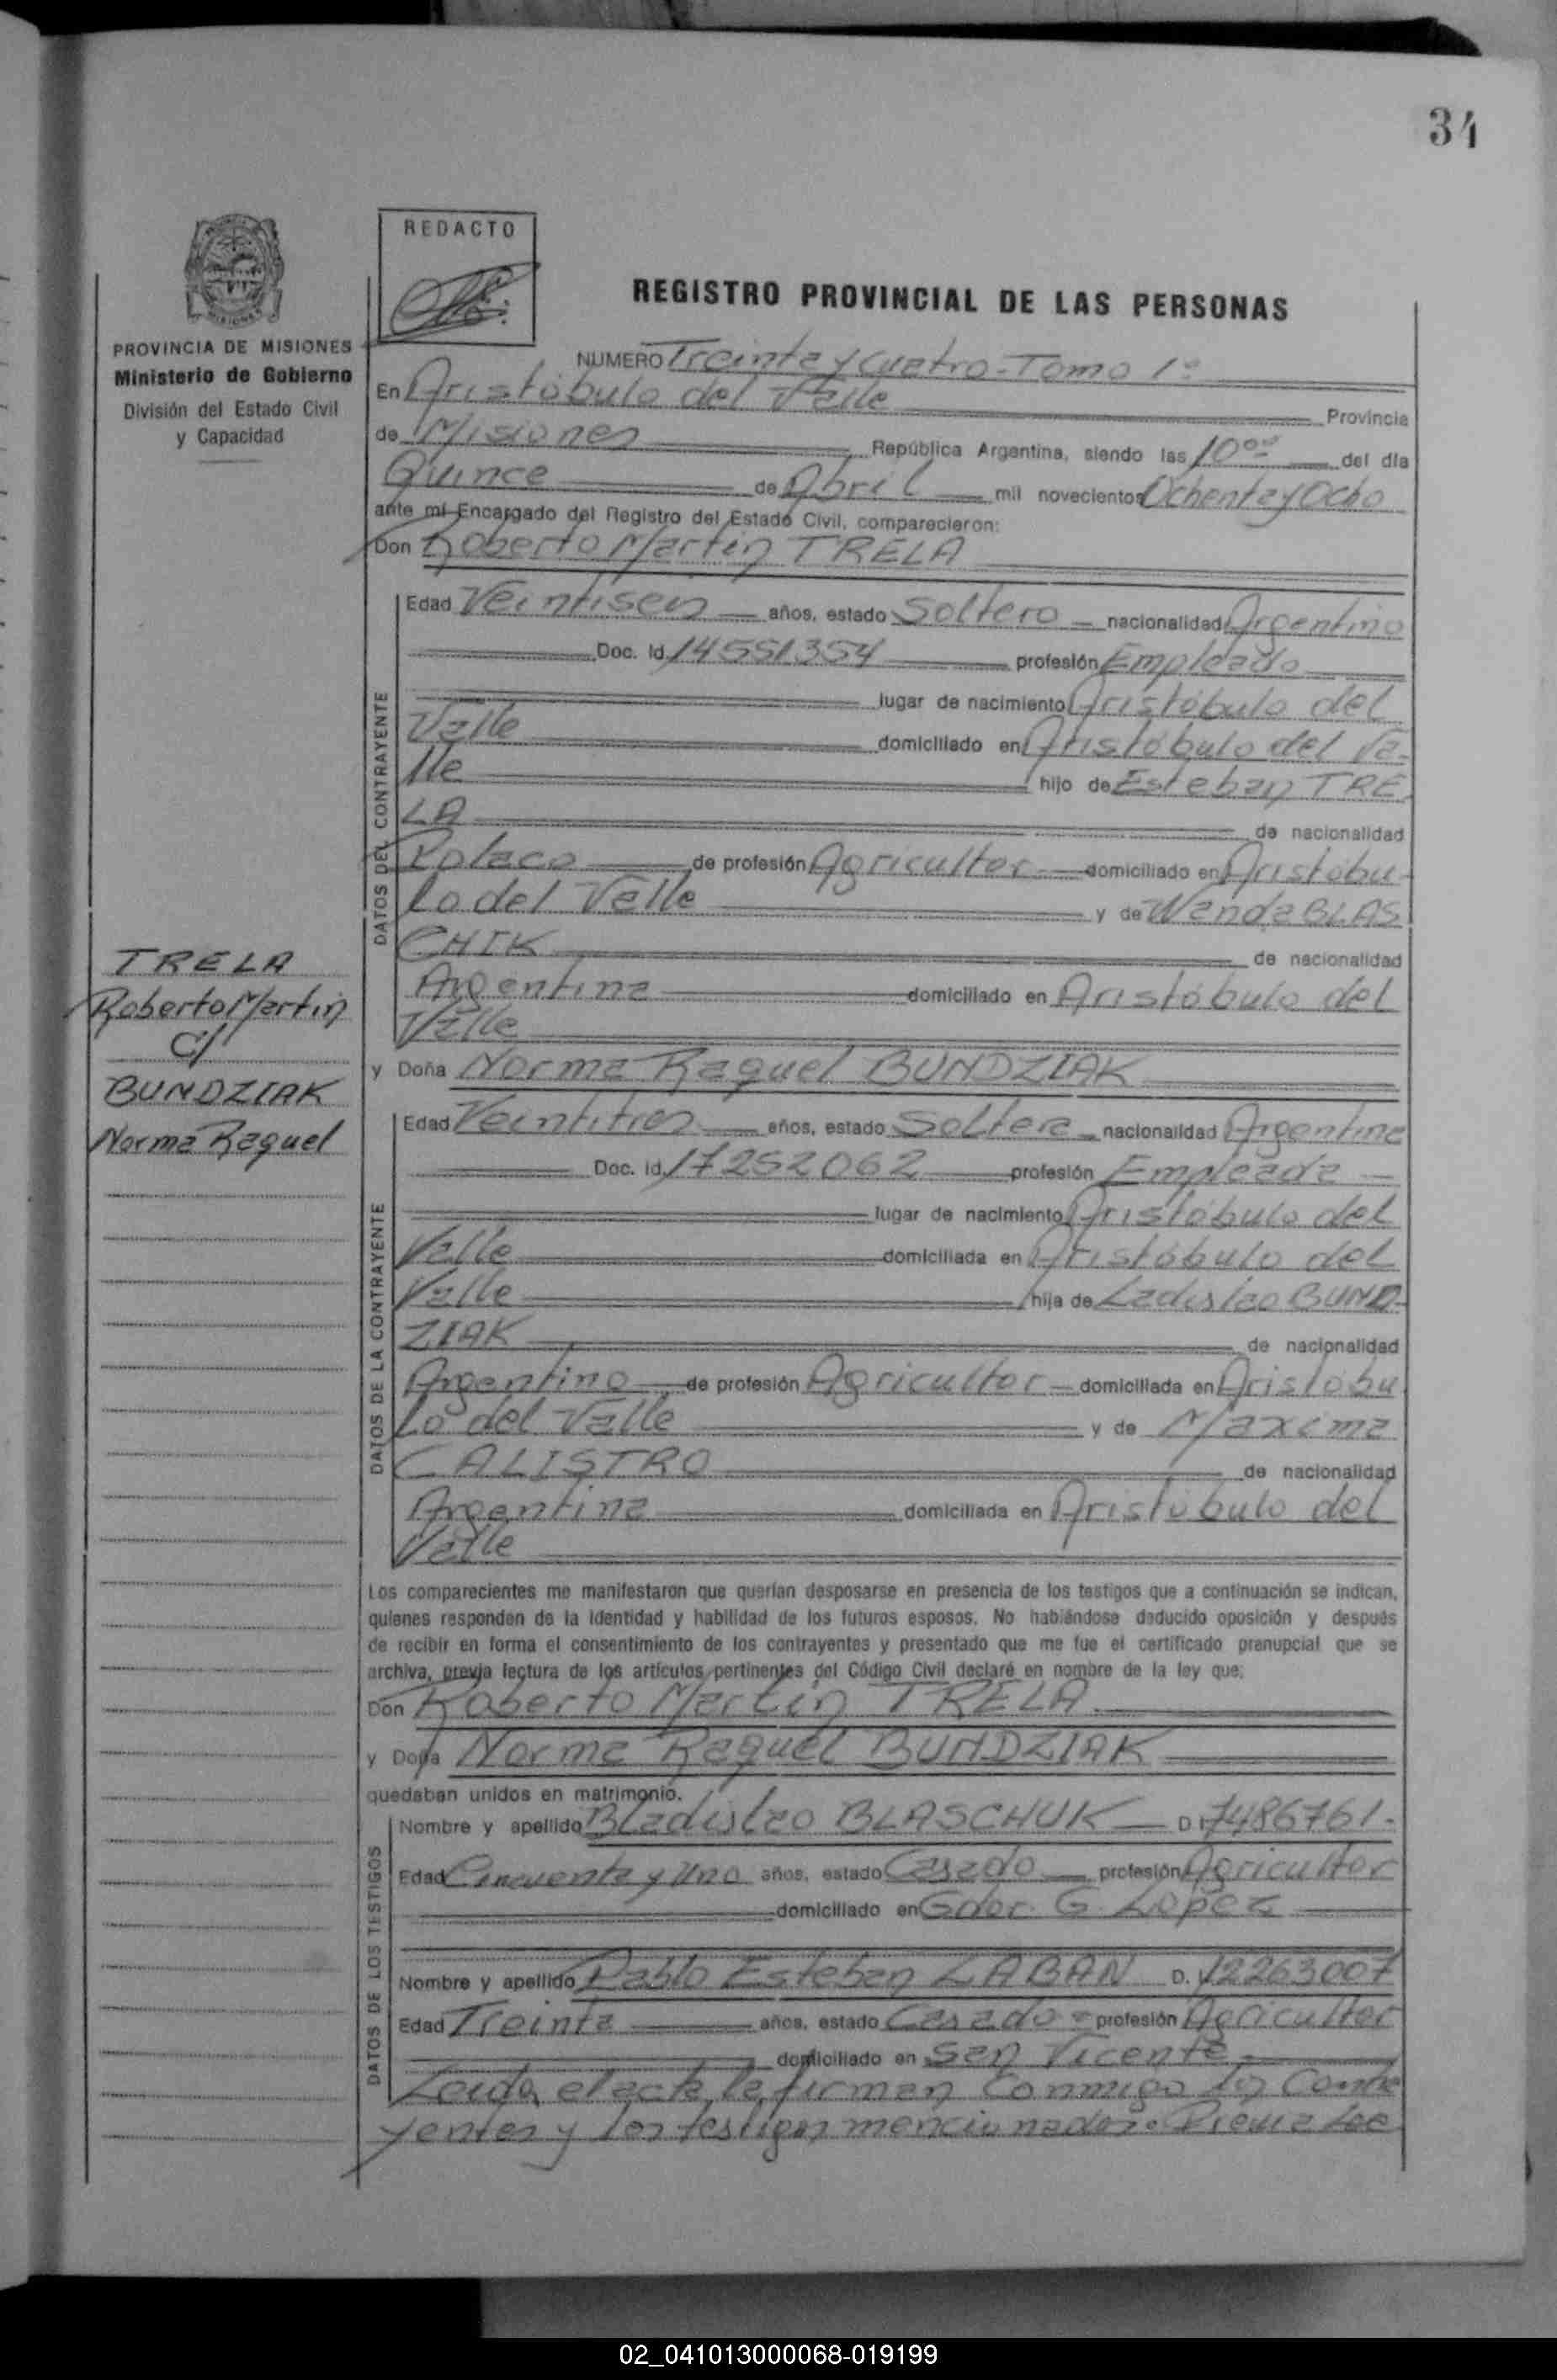 34
REDACTO
REGISTRO PROVINCIAL DE LAS PERSONAS
PROVINCIA DE MISIONES
Ministerio de Gobierno
División del Estado Civil
y Capacidad
NUMERO Treinta y Cuatro - Tomo 1º
En Aristóbulo del Valle Provincia
de Misiones República Argentina, siendo las 10⁰⁰ del día
Quince de Abril mil novecientos Ochenta y Ocho
ante mí Encargado del Registro del Estado Civil, comparecieron:
Don Roberto Martin TRELA
DATOS DEL CONTRAYENTE
Edad Veintiseis años, estado Soltero nacionalidad Argentino
Doc. Id. 14551354 profesión Empleado
lugar de nacimiento Aristóbulo del
Valle domiciliado en Aristóbulo del Va-
lle hijo de Esteban TRE
LA de nacionalidad
Polaco de profesión Agricultor domiciliado en Aristóbu-
lo del Valle y de Wanda BLAS
CHIK de nacionalidad
Argentina domiciliado en Aristóbulo del
Valle
TRELA
Roberto Martin
c/
BUNDZIAK
Norma Raquel
y Doña Norma Raquel BUNDZIAK
DATOS DE LA CONTRAYENTE
Edad Veintitres años, estado Soltera nacionalidad Argentina
Doc. Id. 17252062 profesión Empleada
lugar de nacimiento Aristóbulo del
Valle domiciliada en Aristóbulo del
Valle hija de Ladislao BUND-
ZIAK de nacionalidad
Argentino de profesión Agricultor domiciliada en Aristobu
lo del Valle y de Maxima
CALISTRO de nacionalidad
Argentina domiciliada en Aristóbulo del
Valle
Los comparecientes me manifestaron que querían desposarse en presencia de los testigos que a continuación se indican,
quienes responden de la identidad y habilidad de los futuros esposos. No habiéndose deducido oposición y después
de recibir en forma el consentimiento de los contrayentes y presentado que me fue el certificado prenupcial que se
archiva, previa lectura de los artículos pertinentes del Código Civil declaré en nombre de la ley que:
Don Roberto Martin TRELA
y Doña Norma Raquel BUNDZIAK
quedaban unidos en matrimonio.
DATOS DE LOS TESTIGOS
Nombre y apellido Bladislao BLASCHUK D.I. 7486761.
Edad Cincuenta y Uno años, estado Casado profesión Agricultor
domiciliado en Gdor. G. Lopez
Nombre y apellido Pablo Esteban LABAN D.I. 12263007
Edad Treinta años, estado Casado profesión Agricultor
domiciliado en San Vicente
Leida el acta la firman conmigo los Contra
yentes y los testigos mencionados. Previa Lec
02_041013000068-019199